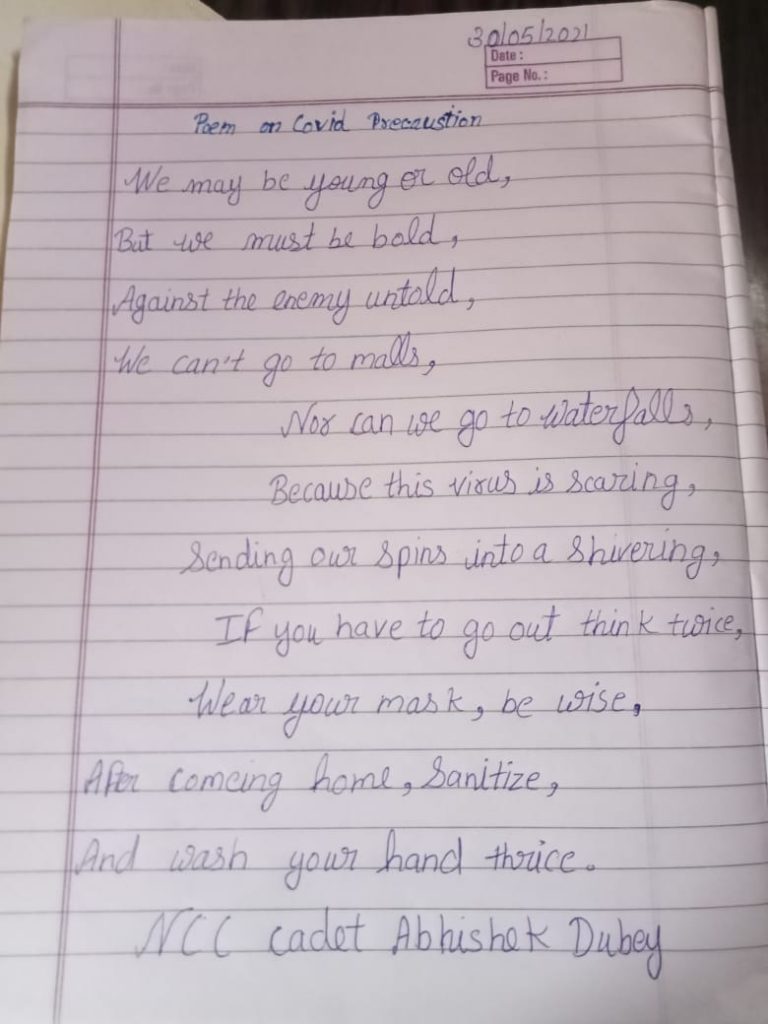 30/05/2021
Date :
Page No. :
Poem on Covid Precaustion
We may be young or old,
But we must be bold,
Against the enemy untold,
We can't go to malls,
Nor can we go to waterfalls,
Because this virus is scaring,
Sending our spins into a shivering,
If you have to go out think twice,
Wear your mask, be wise,
After comeing home, Sanitize,
And wash your hand thrice.
NCC cadet Abhishek Dubey